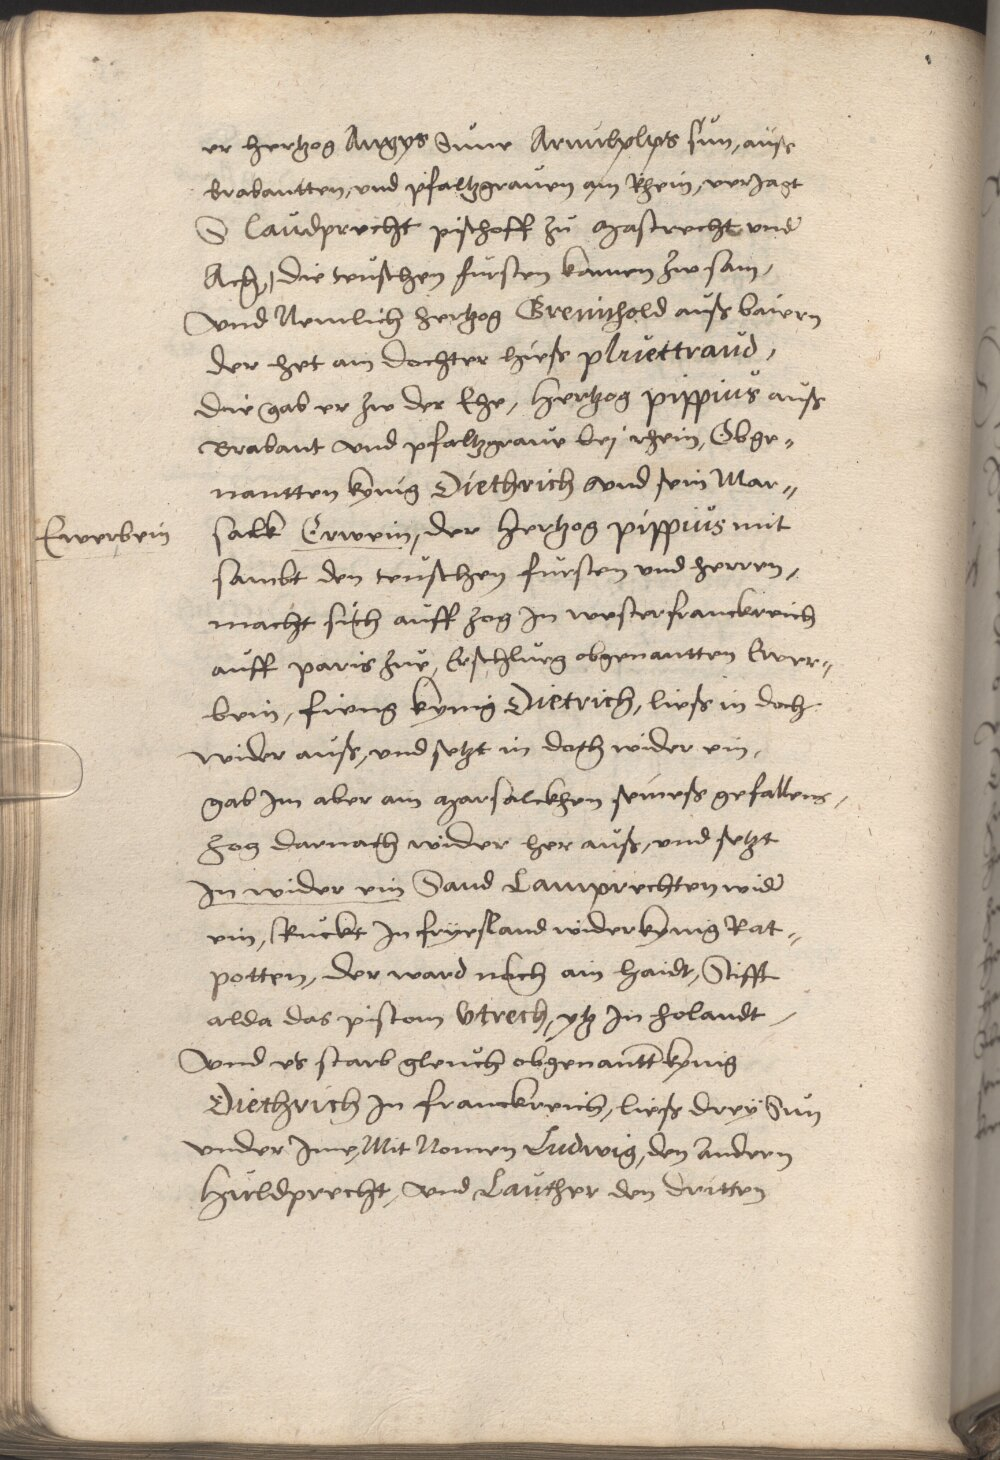 er hertzog Angys Sune Arnuhplps sün, auß
brabantten, und pfaltzgrauen am Rhein, verJagt
S Laudprecht pischoff zu Mastrecht und
Ach, die teutschen fursten kamen zw sam,
Und Nemlich hertzog Greinhold auß baiern
der het ain dochter hieß plruettraud,
die gab er zw der Ehe, hertzog pippius auß
Brabant und pfaltzgraue bej rhein, Obge„
nantten kynig Diethrich und sein Mar„
Ewerbein
salk Erwein, der hertzog pippius mit
sambt den teutschen fursten und herren,
macht sich auff zog In westerfranckreich
auff paris zue, Erschlueg obgenantten Ewer„
bein, fieng kynig Dietrich, ließ in doch
wider auß, und setzt in doch wider ein,
gab Im aber ain marsalckhen seineß gefallens,
Zog darnach wider her auß, und setzt
In wider ein Sand Lamprechten wider
ein, Ruckt In fryesland wider kynig Rat„
potten, der ward noch ain haidt, Stifft
alda das pistom Utrech, ytz In holandt,
Und es starb gleuch obgenantt kynig
Diethrich In franckreich, ließ drey Sun
under Ime, Mit Nomen Ludwig, den Andern
Huldprecht, und Lauther den dritten